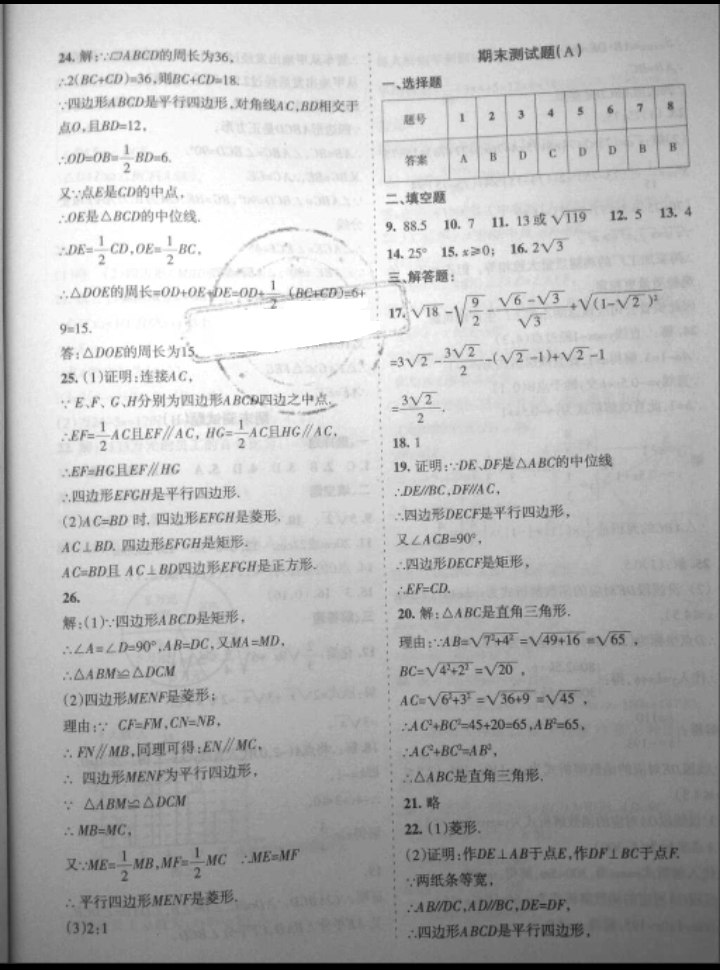 24. 解:∵▱ABCD的周长为36,
∴2(BC+CD)=36,则BC+CD=18.
∵四边形ABCD是平行四边形,对角线AC,BD相交于
点O,且BD=12,
∴OD=OB=1/2 BD=6.
又∵点E是CD的中点,
∴OE是△BCD的中位线.
∴DE=1/2 CD,OE=1/2 BC,
∴△DOE的周长=OD+OE+DE=OD+1/2 (BC+CD)=6+
9=15.
答:△DOE的周长为15.
25. (1)证明:连接AC,
∵E、F、G、H分别为四边形ABCD四边之中点,
∴EF=1/2 AC且EF∥AC, HG=1/2 AC且HG∥AC,
∴EF=HG且EF∥HG
∴四边形EFGH是平行四边形.
(2)AC=BD 时. 四边形EFGH是菱形.
AC⊥BD. 四边形EFGH是矩形.
AC=BD且 AC⊥BD四边形EFGH是正方形.
26.
解:(1)∵四边形ABCD是矩形,
∴∠A=∠D=90°,AB=DC,又MA=MD,
∴△ABM≌△DCM
(2)四边形MENF是菱形;
理由:∵ CF=FM,CN=NB,
∴ FN∥MB,同理可得:EN∥MC,
∴ 四边形MENF为平行四边形,
∵ △ABM≌△DCM
∴ MB=MC,
又∵ME=1/2 MB,MF=1/2 MC ∴ME=MF
∴ 平行四边形MENF是菱形.
(3)2:1
期末测试题(A)
一、选择题
题号 1 2 3 4 5 6 7 8
答案 A B D C D D B B
二、填空题
9. 88.5 10. 7 11. 13或√119 12. 5 13. 4
14. 25° 15. x≥0; 16. 2√3
三、解答题:
17. √18 -√(9/2) - (√6-√3)/√3 +√(1-√2)²
=3√2 - 3√2/2 -(√2-1)+√2-1
=3√2/2.
18. 1
19. 证明:∵DE、DF是△ABC的中位线
∴DE//BC,DF//AC,
∴四边形DECF是平行四边形,
又∠ACB=90°,
∴四边形DECF是矩形,
∴EF=CD.
20. 解:△ABC是直角三角形.
理由:∵AB=√(7²+4²) =√(49+16) =√65 ,
BC=√(4²+2²) =√20 ,
AC=√(6²+3²) =√(36+9) =√45 ,
∴AC²+BC²=45+20=65,AB²=65,
∴AC²+BC²=AB²,
∴△ABC是直角三角形.
21. 略
22. (1)菱形.
(2)证明:作DE⊥AB于点E,作DF⊥BC于点F.
∵两纸条等宽,
∴AB//DC,AD//BC,DE=DF,
∴四边形ABCD是平行四边形,